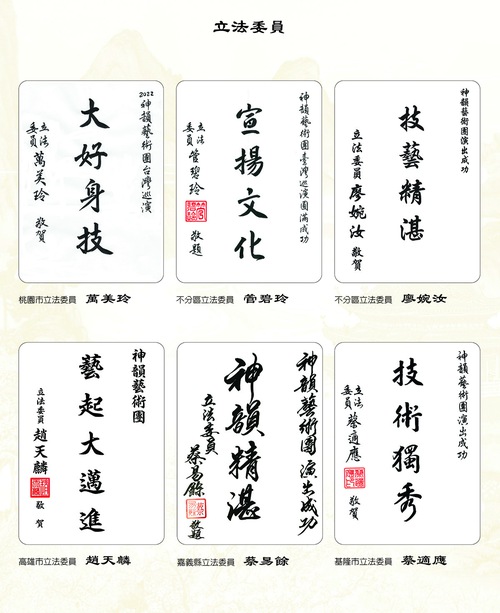 立法委員
2022
神韻藝術團台灣巡演
大好身技
立法委員 萬美玲 敬賀
桃園市立法委員 萬美玲
神韻藝術團臺灣巡演圓滿成功
宣揚文化
立法委員 管碧玲 敬題
不分區立法委員 管碧玲
神韻藝術團演出成功
技藝精湛
立法委員 廖婉汝 敬賀
不分區立法委員 廖婉汝
神韻藝術團
藝起大邁進
立法委員 趙天麟 敬賀
高雄市立法委員 趙天麟
神韻藝術團演出成功
神韻精湛
立法委員 蔡易餘 敬題
嘉義縣立法委員 蔡易餘
神韻藝術團演出成功
技術獨秀
立法委員 蔡適應 敬賀
基隆市立法委員 蔡適應